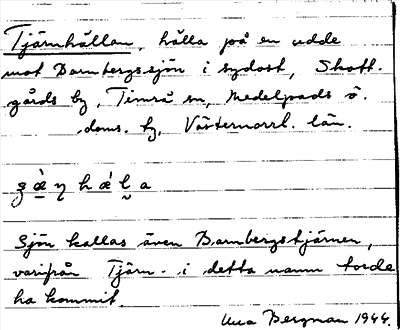 Tjärnhällan, hälla på en udde
mot Barnbergssjön i sydost, Skott-
gårds by, Timrå sn, Medelpads ö.
doms. tg, Västernorrl. län.
Sjön kallas även Barnbergstjärnen,
varifrån Tjärn- i detta namn torde
ha kommit.
Bergman 1944.